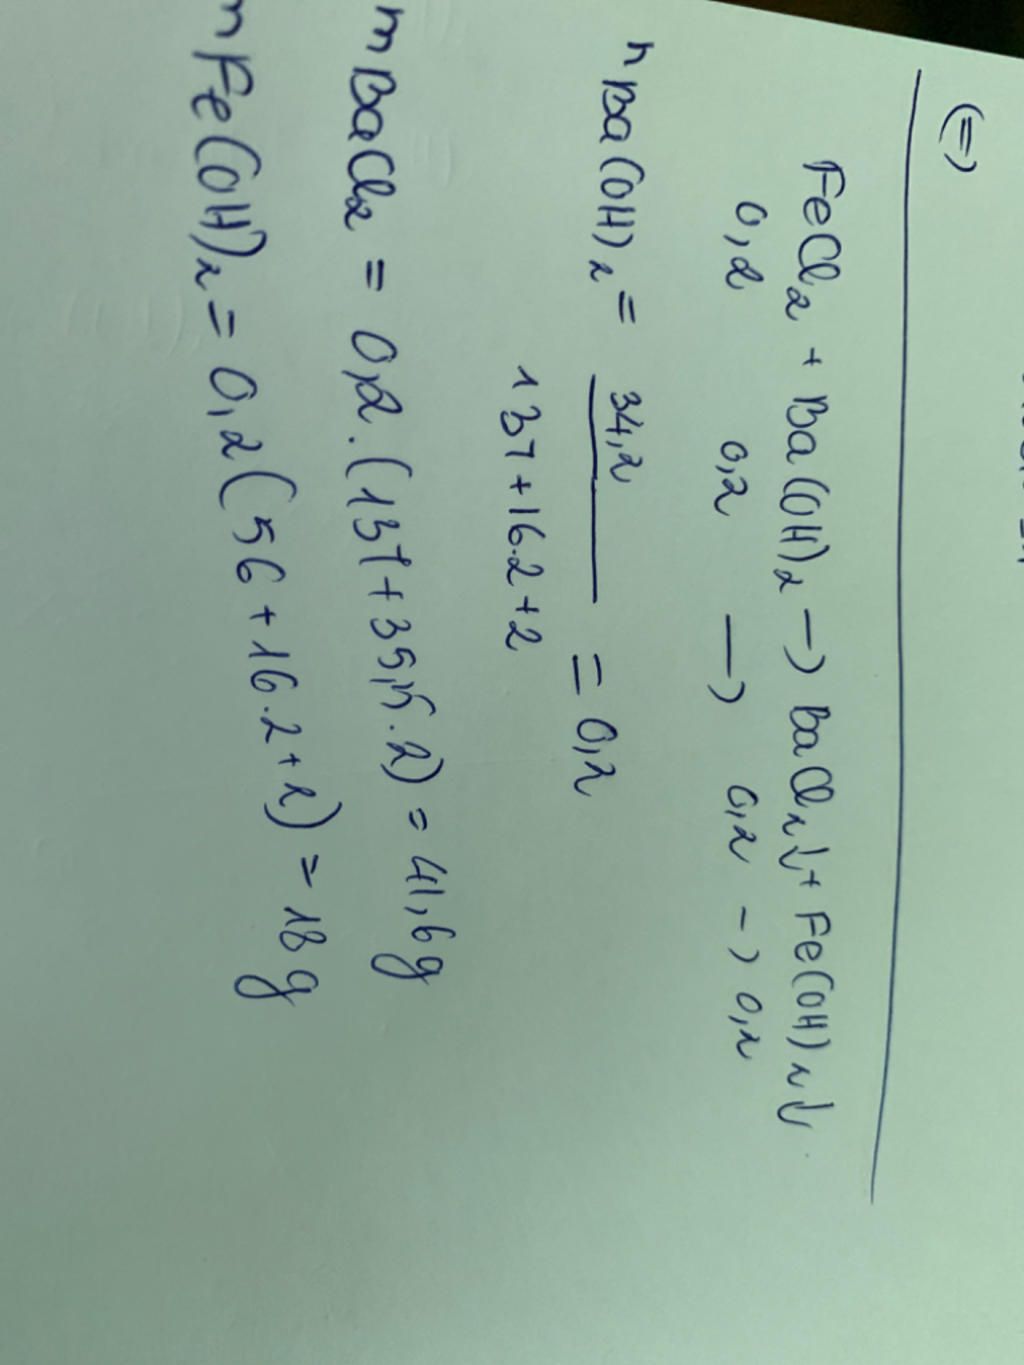 (=)
FeCl2 + Ba(OH)2 —) BaCl2↓ + Fe(OH)2↓
0,2 0,2 —) 0,2 -) 0,2
nBa(OH)2 = 34,2 = 0,2
137+16.2+2
mBaCl2 = 0,2.(137+35,5.2) = 41,6g
mFe(OH)2 = 0,2(56+16.2+2) = 18g